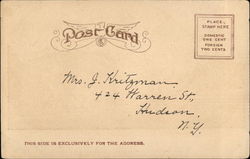 Post Card
PLACE
STAMP HERE
DOMESTIC
ONE CENT
FOREIGN
TWO CENTS
Mrs. J. Kritzman
424 Warren St,
Hudson,
N.Y.
THIS SIDE IS EXCLUSIVELY FOR THE ADDRESS.